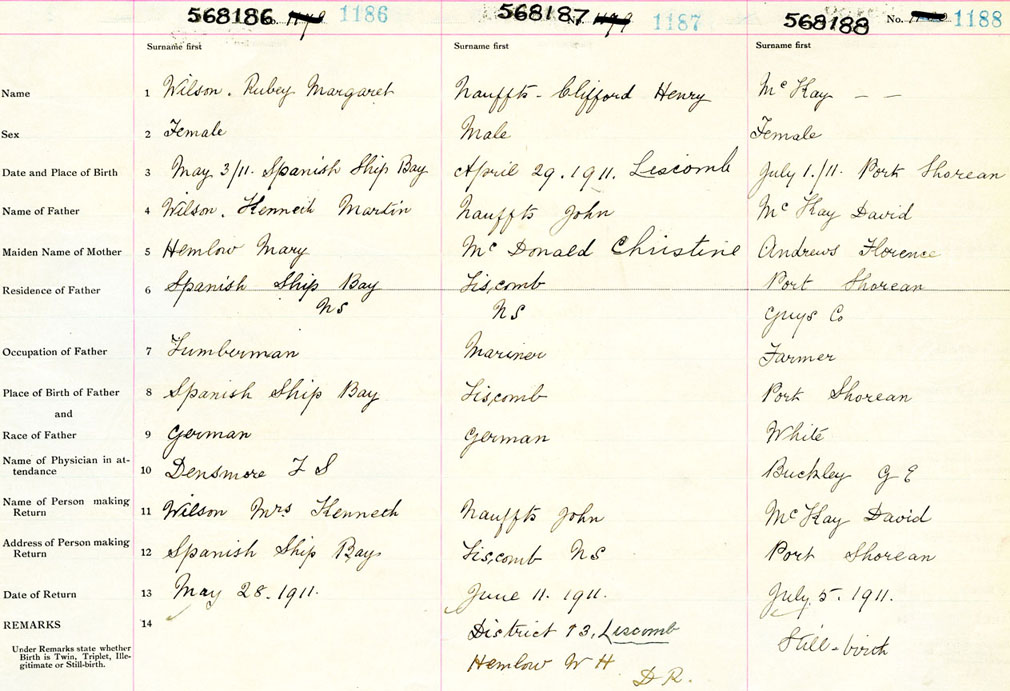 568186 No. 1186 568187 1187 568188 No. 1188
Surname first Surname first Surname first
Name 1 Wilson. Rubey Margaret Nauffts - Clifford Henry McKay — —
Sex 2 Female Male Female
Date and Place of Birth 3 May 3/11. Spanish Ship Bay April 29. 1911. Liscomb July 1./11. Port Shorean
Name of Father 4 Wilson. Kenneth Martin Nauffts John McKay David
Maiden Name of Mother 5 Hemlow Mary McDonald Christine Andrews Florence
Residence of Father 6 Spanish Ship Bay Liscomb Port Shorean
NS NS Guys Co
Occupation of Father 7 Lumberman Mariner Farmer
Place of Birth of Father 8 Spanish Ship Bay Liscomb Port Shorean
and
Race of Father 9 German German White
Name of Physician in at-
tendance 10 Densmore F S Buckley G E
Name of Person making
Return 11 Wilson Mrs Kenneth Nauffts John McKay David
Address of Person making
Return 12 Spanish Ship Bay Liscomb NS Port Shorean
Date of Return 13 May 28. 1911. June 11. 1911. July. 5. 1911.
REMARKS 14 District 13, Liscomb Still-birth
Under Remarks state whether
Birth is Twin, Triplet, Ille-
gitimate or Still-birth.
Hemlow W H
D R.